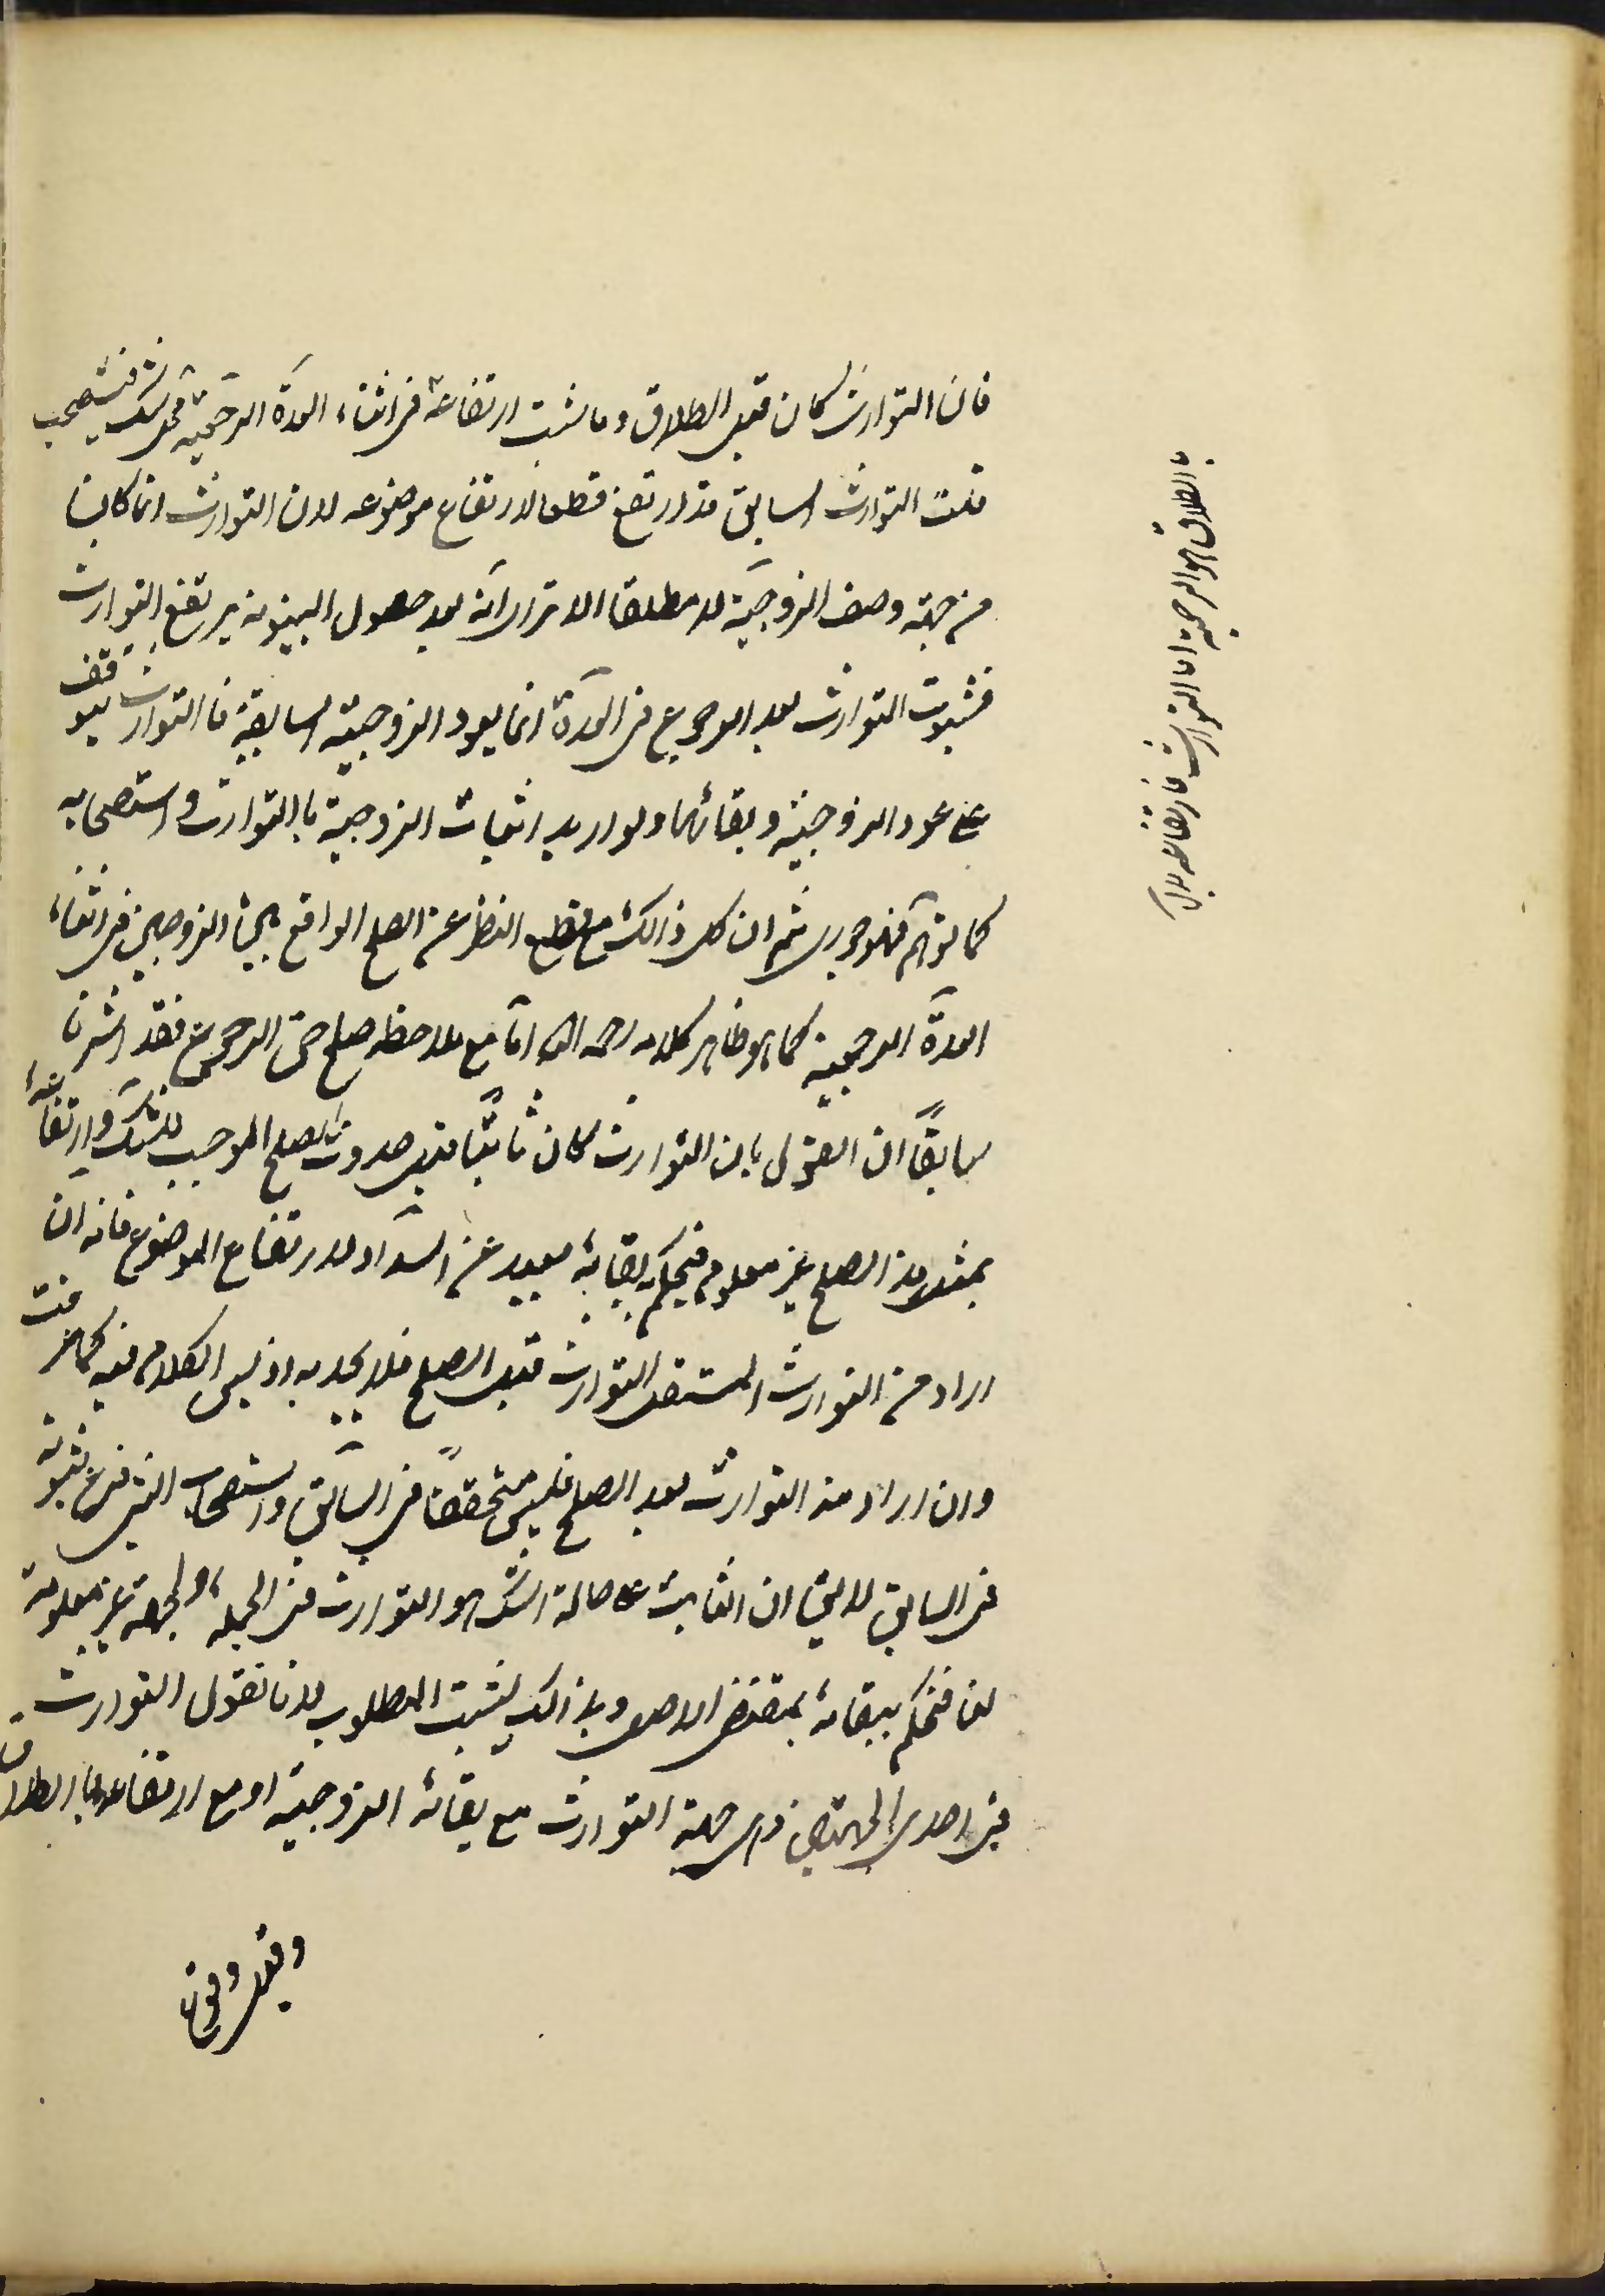 فان التوارث كان قبل الطلاق وما ثبت ارتفاعه فى اثناء العدة الرجعية محل شك فنستصحب
قلت التوارث السابق قد ارتفع قطعا لارتفاع موضوعه لان التوارث انما كان
من جهة وصف الزوجية لا مطلقا الا ترى انه بعد حصول البينونة يرتفع التوارث
فثبوت التوارث بعد الرجوع فى العدة انما يعود الزوجية السابقة فالتوارث يتوقف
على عود الزوجية وبقائها ولو اريد اثبات الزوجية باالتوارث واستصحابه
كما توهم فهو دورى ثم ان كل ذالك مع قطع النظر عن الصلح الواقع بين الزوجين فى اثناء
العدة الرجعية كما هو ظاهر كلامه رحمه الله اما مع ملاحظة صلح حق الرجوع فقد اشرنا
سابقاً ان القول بان التوارث كان ثابتا قبل حدوث الصلح الموجب للشك وارتفاعه
بمثل هذا الصلح غير معلوم فيحكم ببقائه بعيد عن السداد لارتفاع الموضوع فانه ان
اراد من التوارث المستقل التوارث قبل الصلح فلا يجديه اذ ليس الكلام فيه كما عرفت
وان اراد منه التوارث بعد الصلح فليس متحققاً فى السابق واستصحاب الشئ فرع ثبوته
فى السابق لا يق ان الثابت حالة الشك هو التوارث فى الجملة والجهة غير معلومة
لنا فنحكم ببقائه بمقتضى الاصل وبذالك يثبت المطلوب لانا نقول التوارث
فى احدى الجهتين وهى جهة التوارث مع بقائه الزوجية او مع ارتفاعها باالطلاق
باالطلاق هو الرجعية اما التوارث فارتفاعه